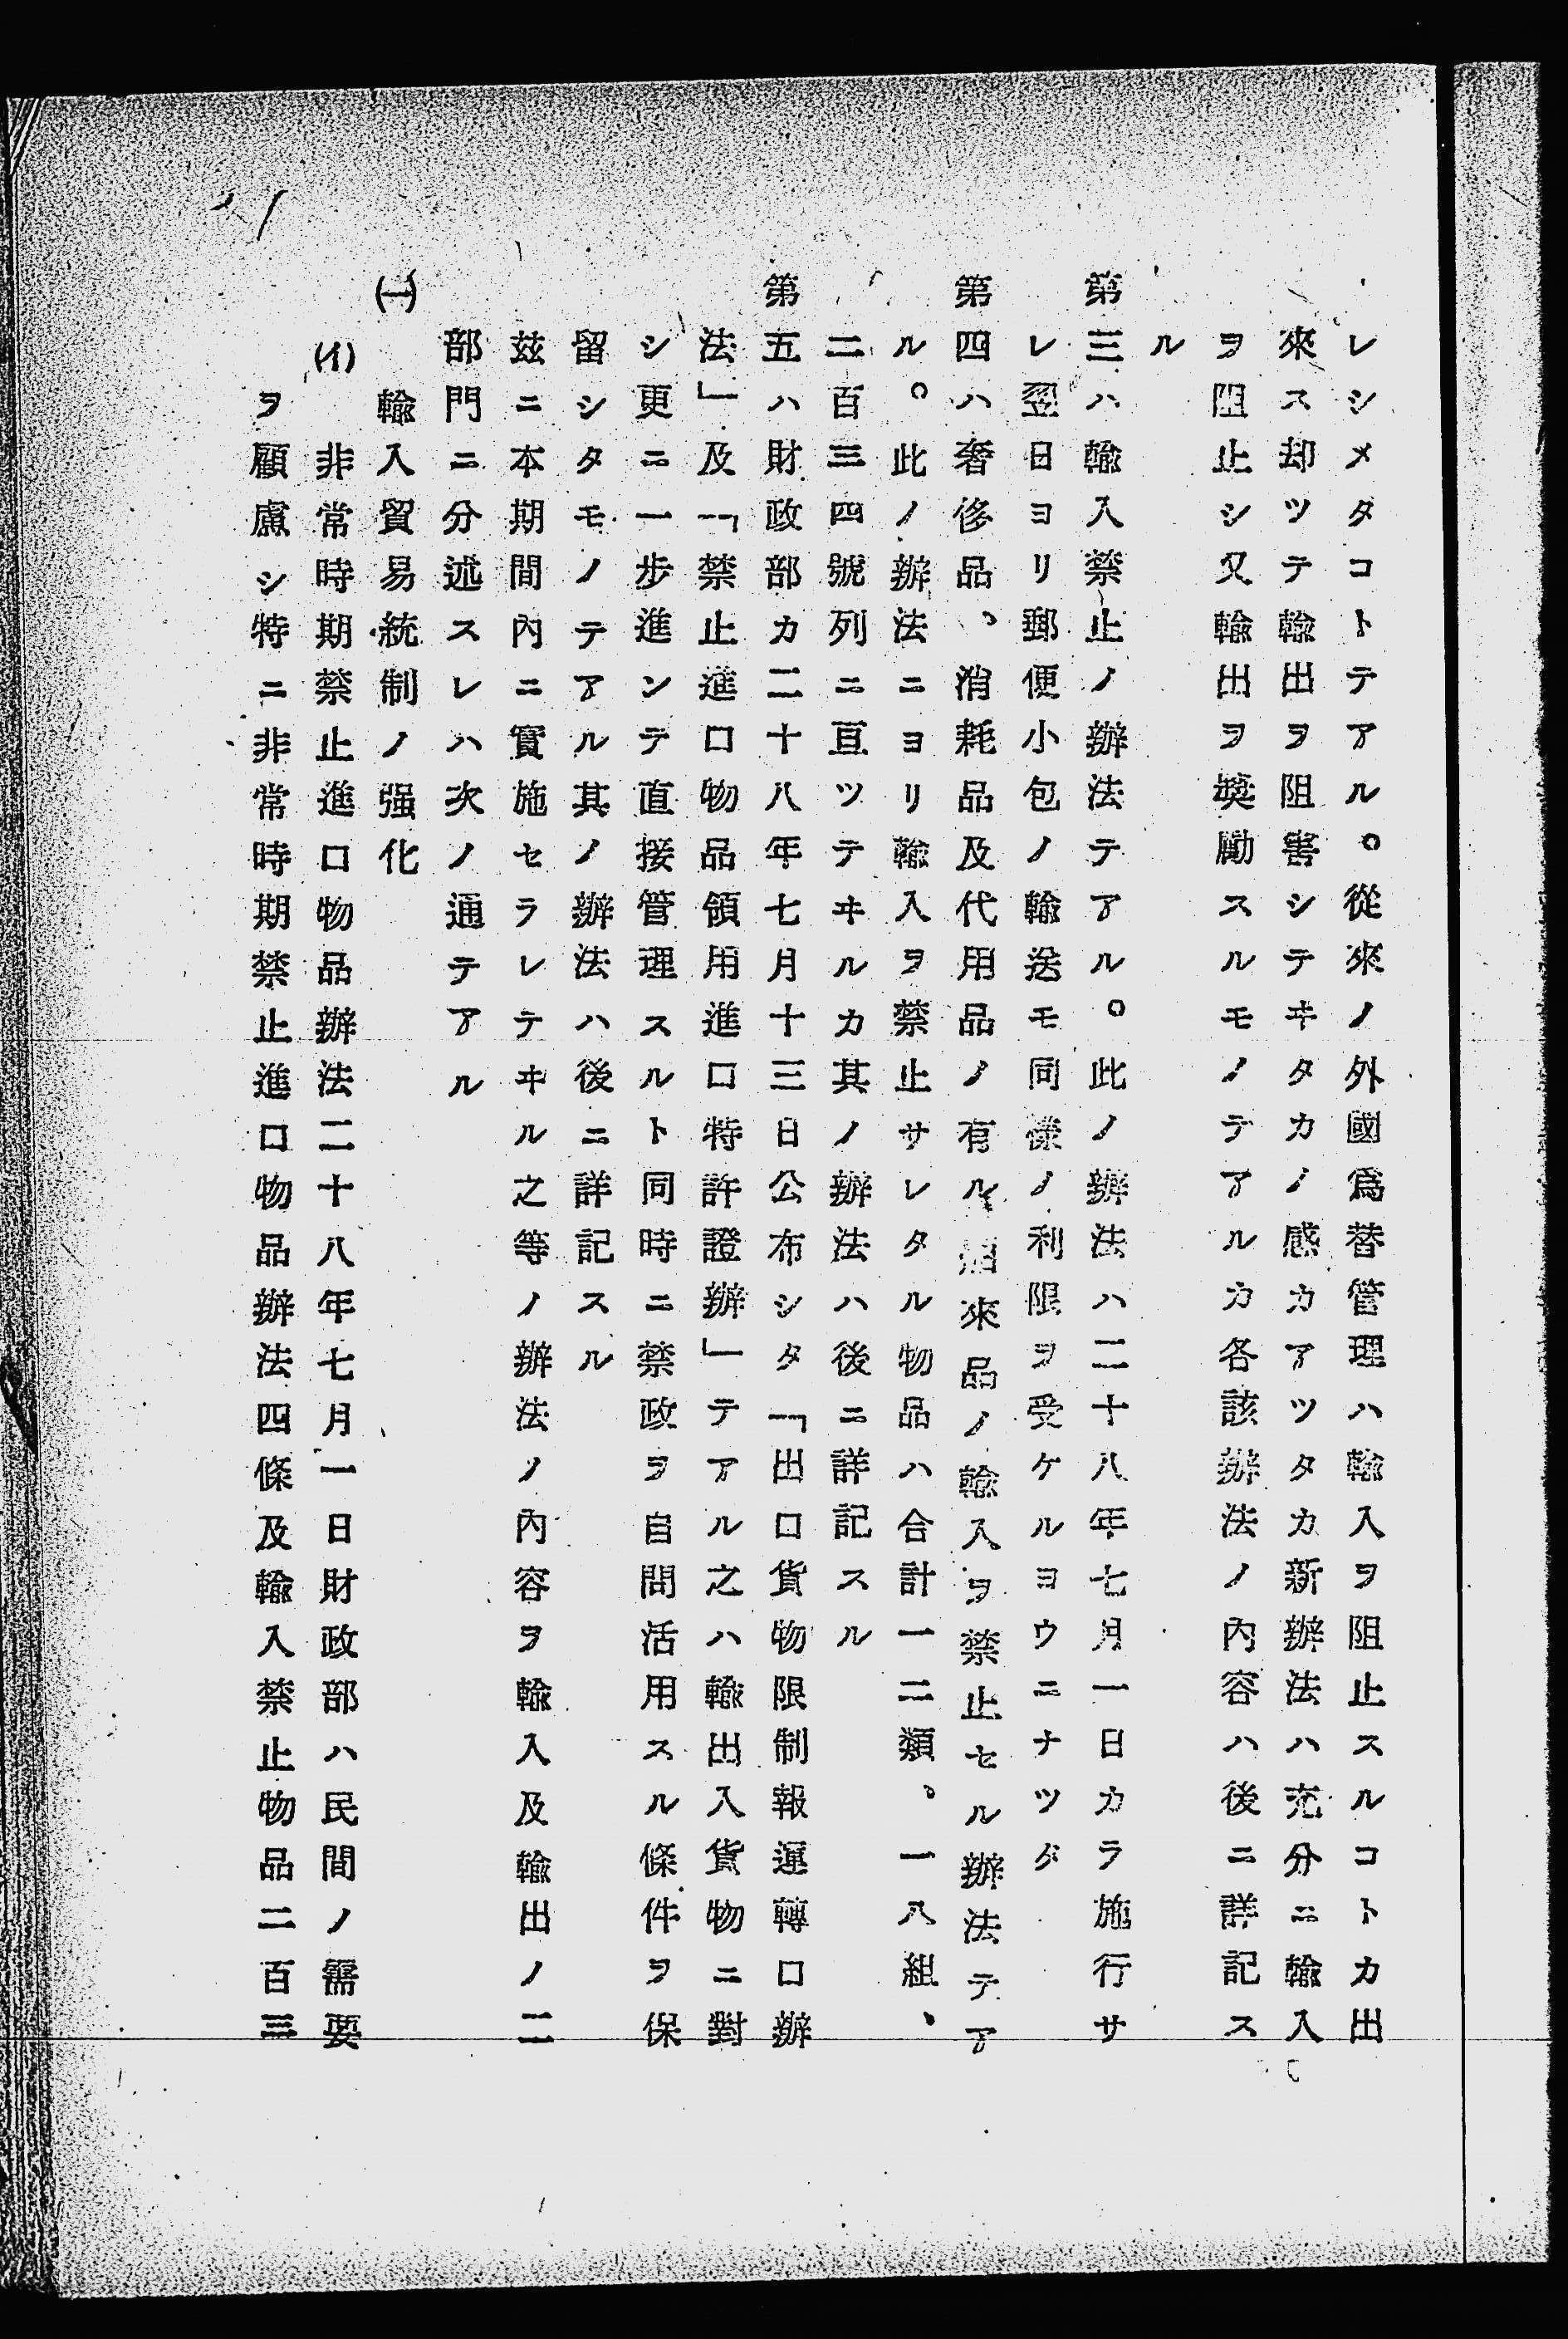 レシメタコトテアル。從來ノ外國爲替管理ハ輸入ヲ阻止スルコトカ出
來ス却ツテ輸出ヲ阻害シテヰタカノ感カアツタカ新辦法ハ充分ニ輸入
ヲ阻止シ又輸出ヲ奬勵スルモノテアルカ各該辦法ノ內容ハ後ニ詳記ス
ル
第三ハ輸入禁止ノ辦法テアル。此ノ辦法ハ二十八年七月一日カラ施行サ
レ翌日ヨリ郵便小包ノ輸送モ同樣ノ利限ヲ受ケルヨウニナツタ
第四ハ奢侈品、消耗品及代用品ノ有ル舶來品ノ輸入ヲ禁止セル辦法テア
ル。此ノ辦法ニヨリ輸入ヲ禁止サレタル物品ハ合計一二類、一八組、
二百三四號列ニ亘ツテヰルカ其ノ辦法ハ後ニ詳記スル
第五ハ財政部カ二十八年七月十三日公布シタ「出口貨物限制報運轉口辦
法」及「禁止進口物品領用進口特許證辦」テアル之ハ輸出入貨物ニ對
シ更ニ一步進ンテ直接管理スルト同時ニ禁政ヲ自問活用スル條件ヲ保
留シタモノテアル其ノ辦法ハ後ニ詳記スル
玆ニ本期間內ニ實施セラレテヰル之等ノ辦法ノ內容ヲ輸入及輸出ノ二
部門ニ分述スレハ次ノ通テアル
㈠ 輸入貿易統制ノ强化
(イ) 非常時期禁止進口物品辦法二十八年七月一日財政部ハ民間ノ需要
ヲ顧慮シ特ニ非常時期禁止進口物品辦法四條及輸入禁止物品二百三